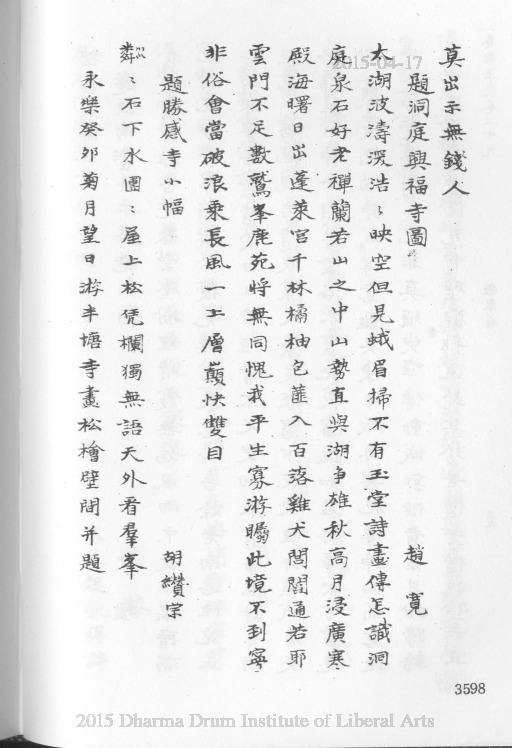 莫出示無錢人
題洞庭興福寺圖
趙寬
太湖波濤深浩〻映空但見蛾眉掃不有玉堂詩畫傳怎識洞
庭泉石好老禪蘭若山之中山勢直與湖争雄秋高月浸廣寒
殿海曙日出蓬萊宮千林橘柚包匭入百落雞犬閭閻通若耶
雲門不足數鷲峯鹿苑將無同愧我平生寡游矚此境不到寧
非俗會當破浪乘長風一上層巔快雙目
題勝感寺小幅
胡纘宗
粼〻石下水團〻屋上松凭欄獨無語天外看羣峯
永樂癸夘菊月望日游半塘寺畫松檜壁間并題
3598
2015-04-17
2015 Dharma Drum Institute of Liberal Arts